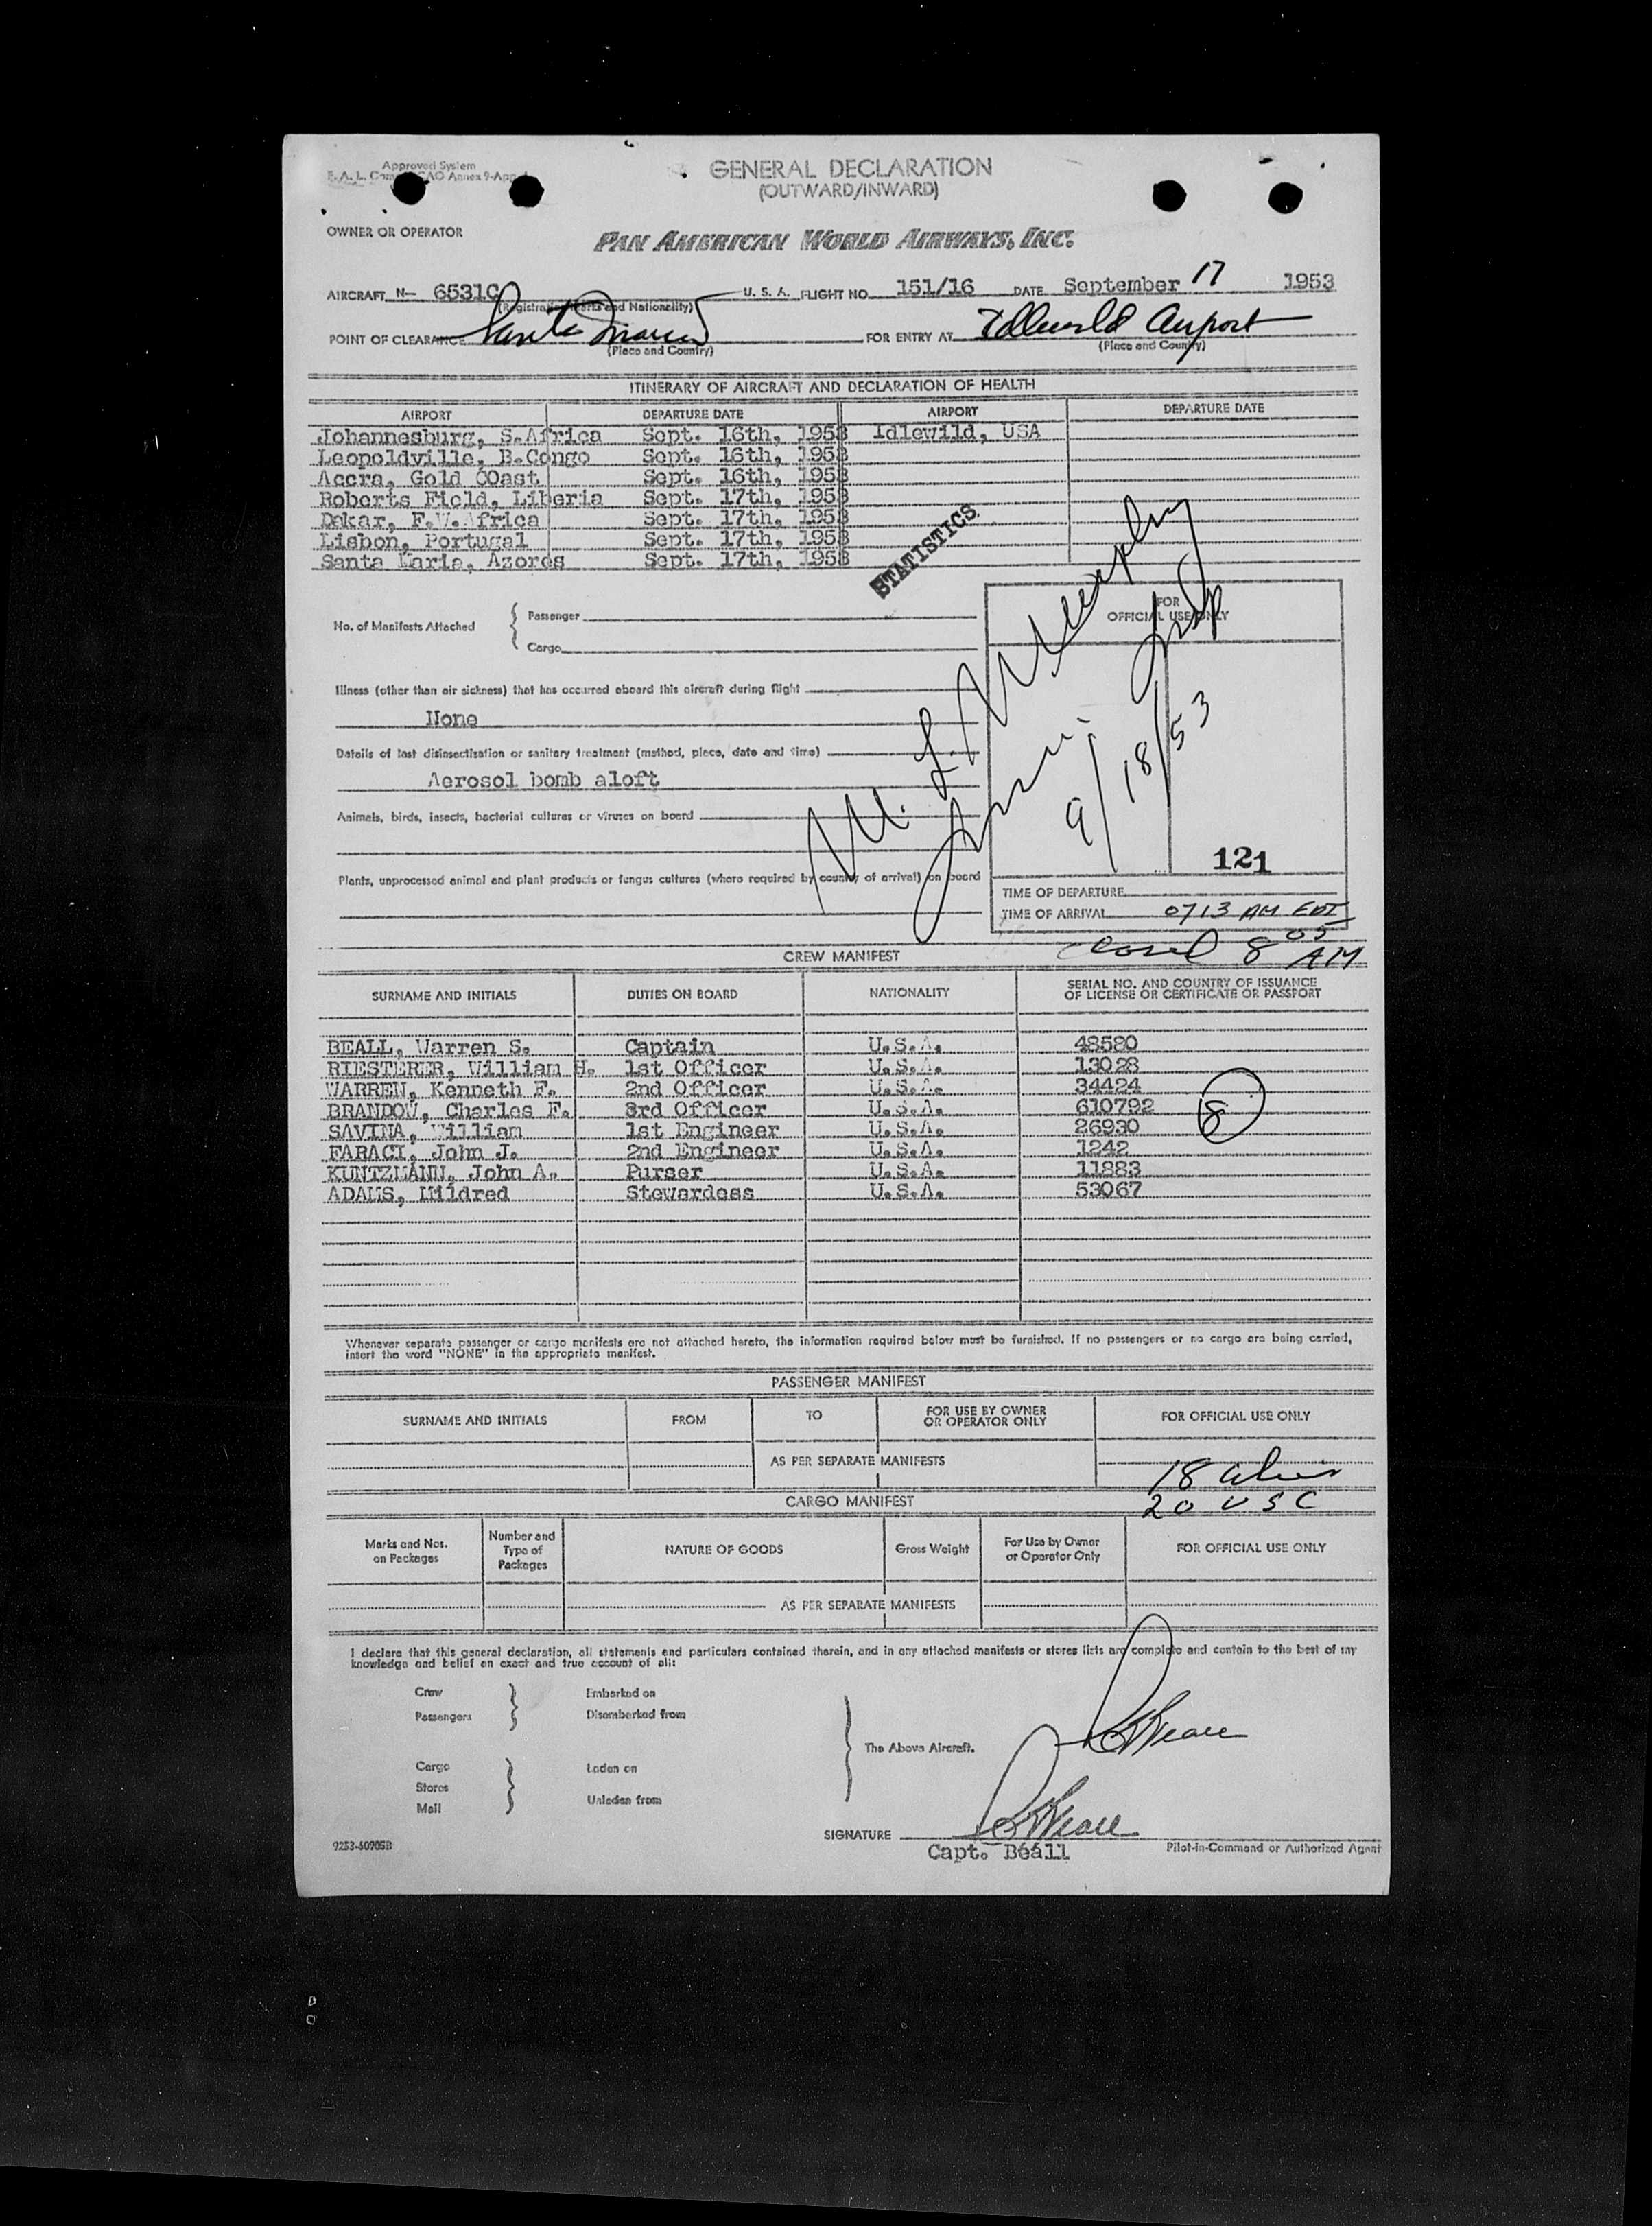 Approved System
GENERAL DECLARATION
(OUTWARD/INWARD)
OWNER OR OPERATOR
PAN AMERICAN WORLD AIRWAYS, INC.
AIRCRAFT N- 6531C U. S. A. FLIGHT NO. 151/16 DATE September 17 1953
(Registration Marks and Nationality)
POINT OF CLEARANCE Santa Maria FOR ENTRY AT Idlewild Airport
(Place and Country) (Place and Country)
ITINERARY OF AIRCRAFT AND DECLARATION OF HEALTH
AIRPORT DEPARTURE DATE AIRPORT DEPARTURE DATE
Johannesburg, S.Africa Sept. 16th, 1953 Idlewild, USA
Leopoldville, B.Congo Sept. 16th, 1953
Accra, Gold COast Sept. 16th, 1953
Roberts Field, Liberia Sept. 17th, 1953
Dakar, F.W.Africa Sept. 17th, 1953
Lisbon, Portugal Sept. 17th, 1953
Santa Maria, Azores Sept. 17th, 1953
STATISTICS
No. of Manifests Attached
Passenger
Cargo
FOR
OFFICIAL USE ONLY
M. L. Murphy
9/18/53
Illness (other than air sickness) that has occurred aboard this aircraft during flight
None
Details of last disinsectization or sanitary treatment (method, place, date and time)
Aerosol bomb aloft
Animals, birds, insects, bacterial cultures or viruses on board
121
Plants, unprocessed animal and plant products or fungus cultures (where required by country of arrival) on board
TIME OF DEPARTURE
TIME OF ARRIVAL 0713 AM EDT
closed 8 05 AM
CREW MANIFEST
SURNAME AND INITIALS DUTIES ON BOARD NATIONALITY SERIAL NO. AND COUNTRY OF ISSUANCE
OF LICENSE OR CERTIFICATE OR PASSPORT
BEALL, Warren S. Captain U.S.A. 48580
RIESTERER, William H. 1st Officer U.S.A. 13028
WARREN, Kenneth F. 2nd Officer U.S.A. 34424
BRANDOW, Charles F. 3rd Officer U.S.A. 610792
8
SAVINA, William 1st Engineer U.S.A. 26930
FARACI, John J. 2nd Engineer U.S.A. 1242
KUNTZMANN, John A. Purser U.S.A. 11883
ADAMS, Mildred Stewardess U.S.A. 53067
Whenever separate passenger or cargo manifests are not attached hereto, the information required below must be furnished. If no passengers or no cargo are being carried,
insert the word "NONE" in the appropriate manifest.
PASSENGER MANIFEST
SURNAME AND INITIALS FROM TO FOR USE BY OWNER
OR OPERATOR ONLY FOR OFFICIAL USE ONLY
AS PER SEPARATE MANIFESTS
18 alien
20 USC
CARGO MANIFEST
Marks and Nos.
on Packages
Number and
Type of
Packages
NATURE OF GOODS
Gross Weight
For Use by Owner
or Operator Only
FOR OFFICIAL USE ONLY
AS PER SEPARATE MANIFESTS
I declare that this general declaration, all statements and particulars contained therein, and in any attached manifests or stores lists are complete and contain to the best of my
knowledge and belief an exact and true account of all:
Crew Embarked on
Passengers Disembarked from
The Above Aircraft.
Cargo Laden on
Stores
Mail Unladen from
SIGNATURE
Capt. Beall Pilot-in-Command or Authorized Agent
9253-60905B